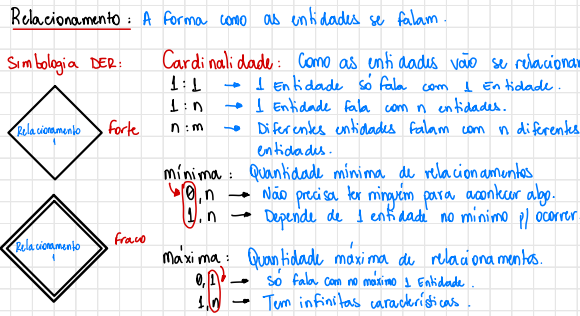 Relacionamento: A forma como as entidades se falam.
Simbologia DER:
Relacionamento
1
Forte
Relacionamento
1
Fraco
Cardinalidade: Como as entidades vão se relacionar
1:1 → 1 Entidade só fala com 1 Entidade.
1:n → 1 Entidade fala com n entidades.
n:m → Diferentes entidades falam com n diferentes
entidades.
mínima: Quantidade mínima de relacionamentos
0,n → Não precisa ter ninguém para acontecer algo.
1,n → Depende de 1 entidade no mínimo p/ ocorrer
máxima: Quantidade máxima de relacionamentos.
0,1 → só fala com no máximo 1 Entidade.
1,n → Tem infinitas características.